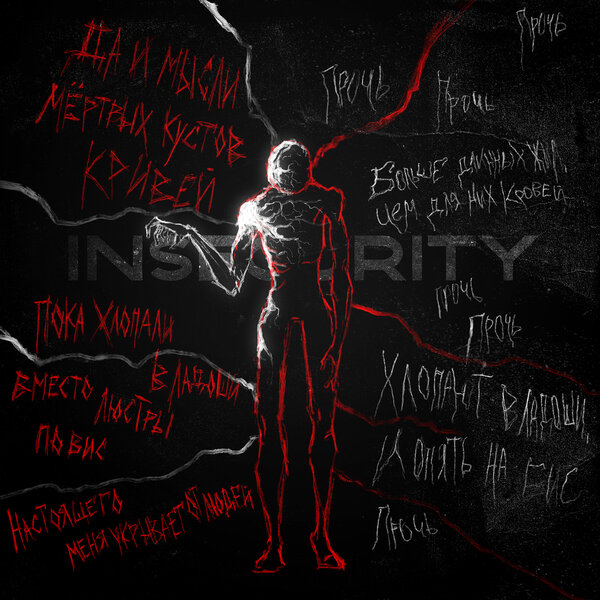 Да и мысли
мёртвых кустов
кривей
Прочь
Прочь
Прочь
Больше длинных жил,
чем для них кровей
INSECURITY
Прочь
Прочь
Пока хлопали
в ладоши
вместо люстры
повис
Хлопают в ладоши,
и опять на бис
Прочь
Настоящего
меня укрывает от людей